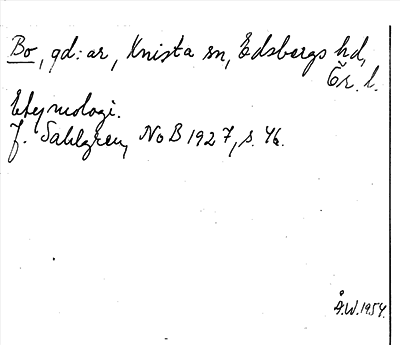 Bo, gd:ar, Knista sn, Edsbergs hd,
Ör. l.
Etymologi.
J. Sahlgren, NoB 1927, s. 46.
Å.W.1954.